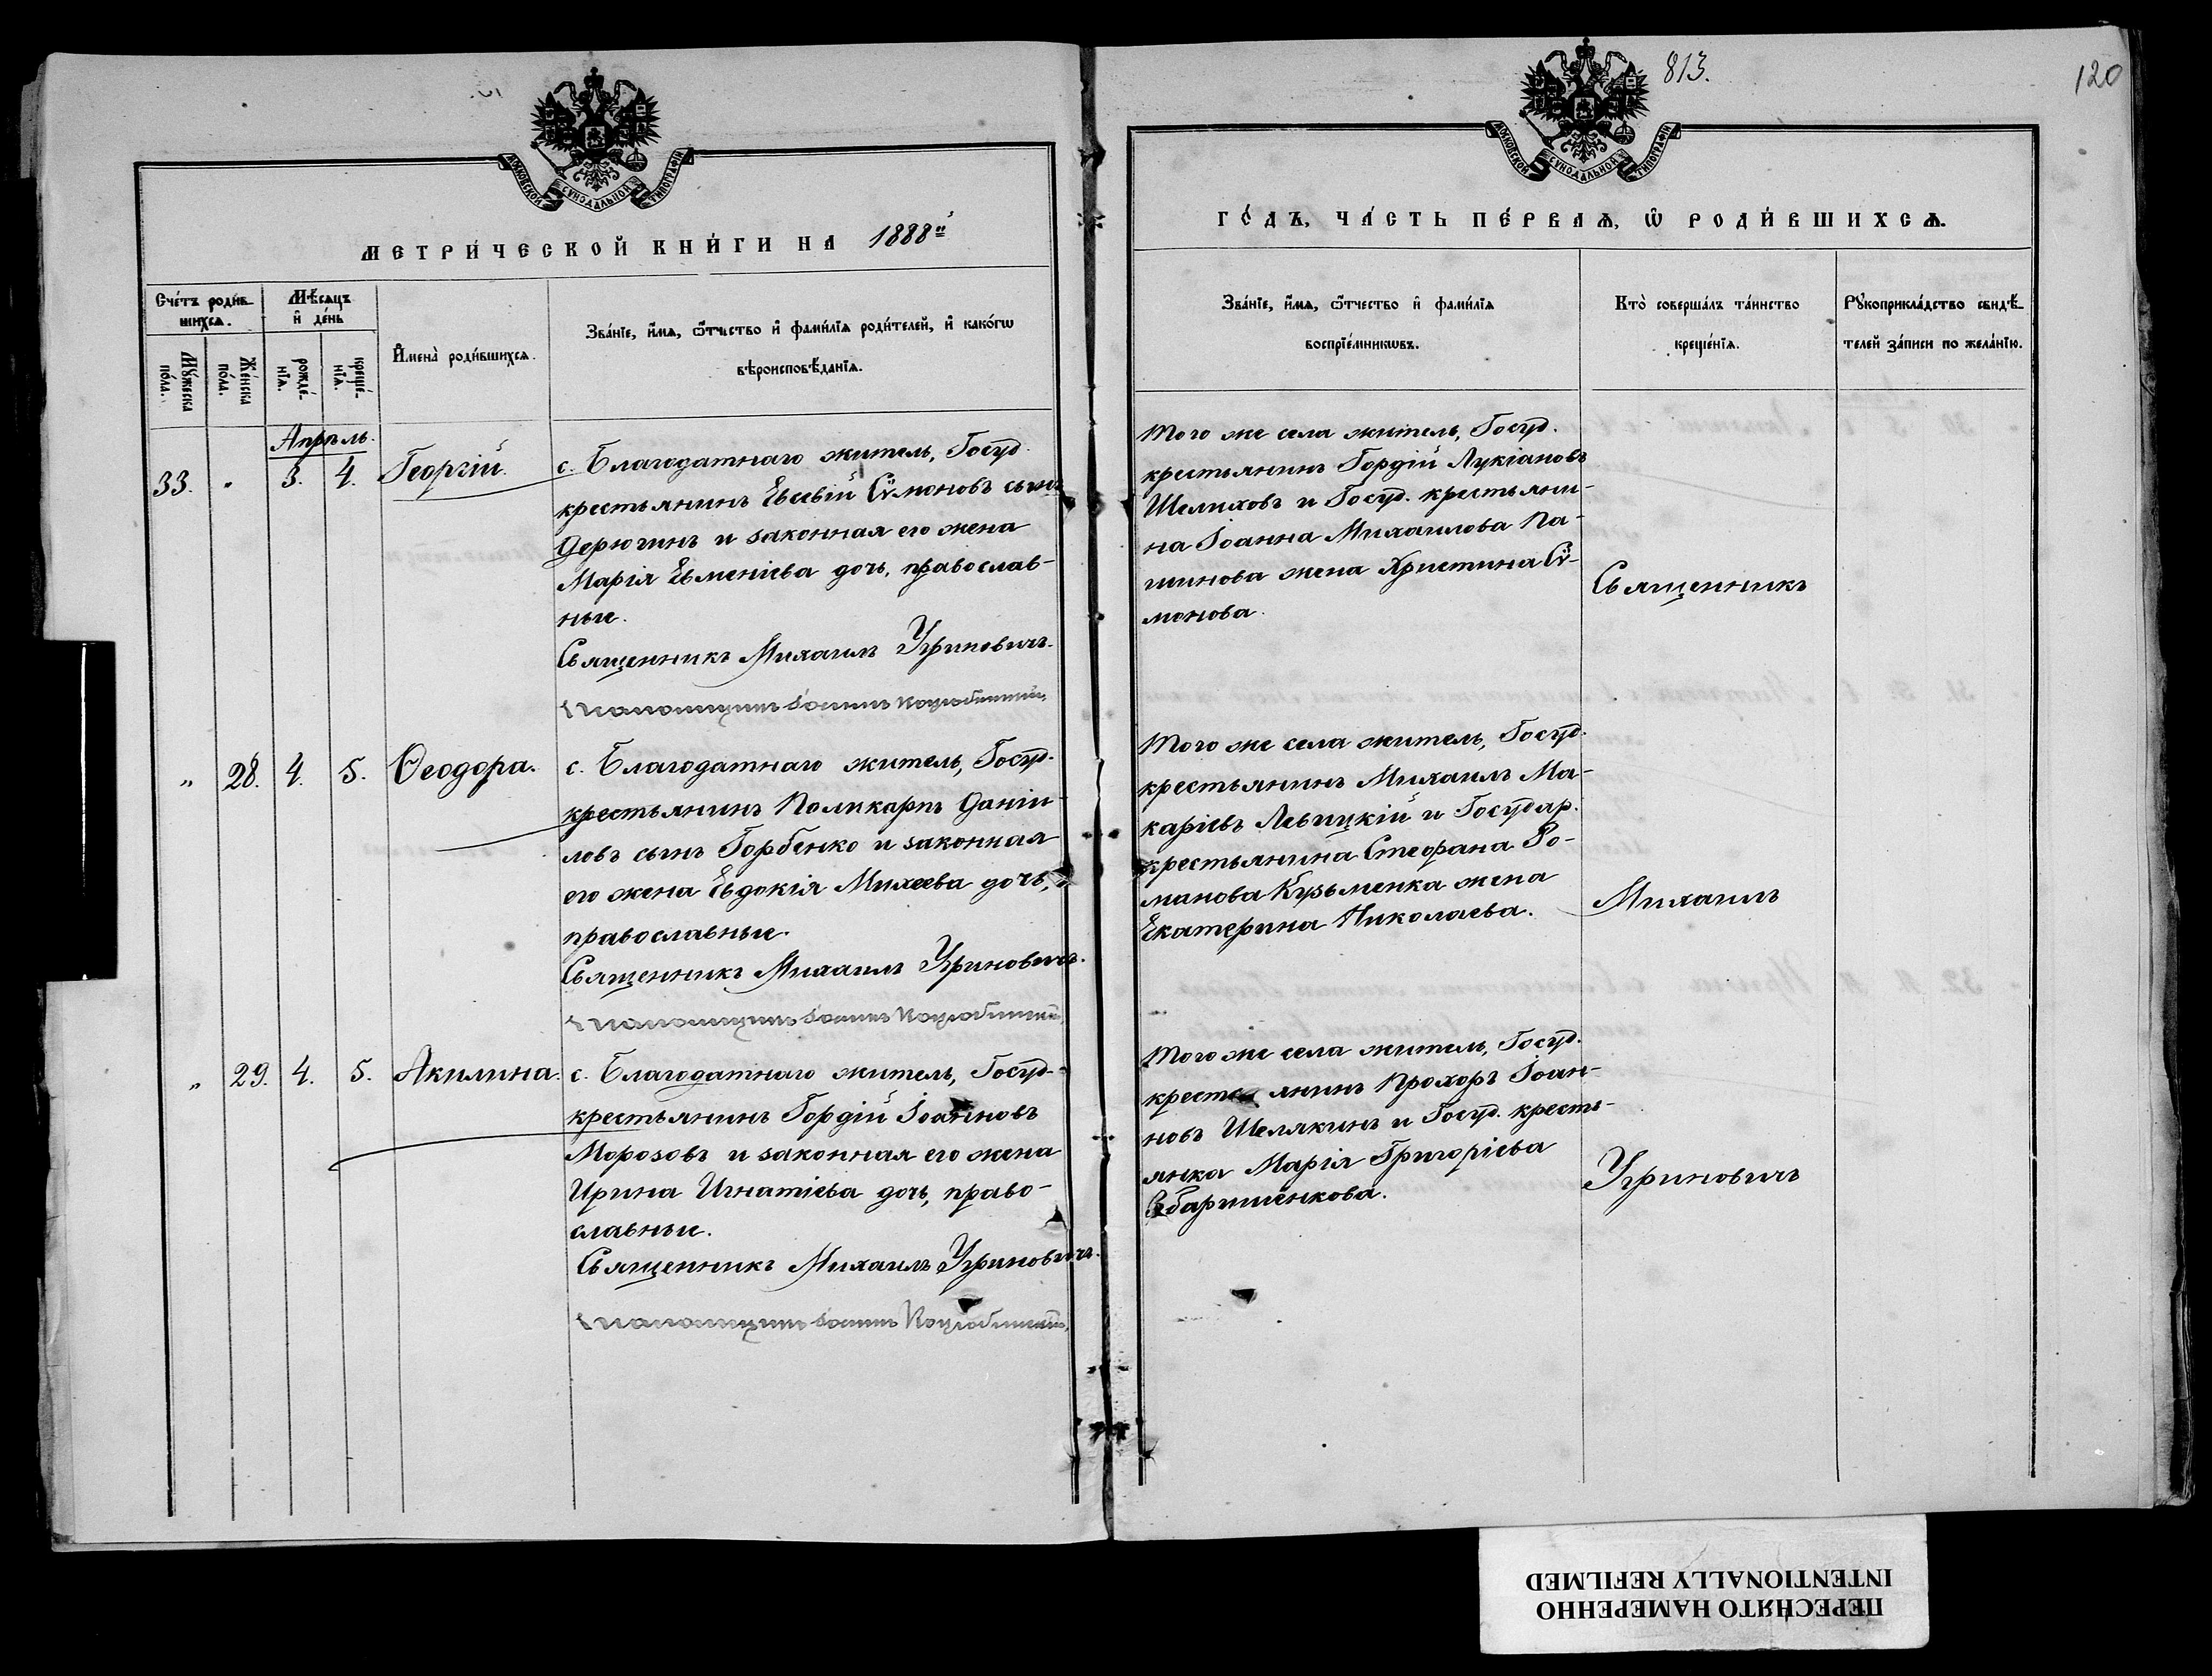 813.
120
МОСКОВСКОЙ СѴНОДАЛЬНОЙ ТИПОГРАФІИ
МОСКОВСКОЙ СѴНОДАЛЬНОЙ ТИПОГРАФІИ
МЕТРИ́ЧЕСКОЙ КНИ́ГИ НА 1888й
ГО́ДЪ, ЧА́СТЬ ПЕ́РВАѦ, Ѡ РОДИ́ВШИХСѦ.
Сче́тъ роди́в-
шихсѧ.
Мѣ́сѧцъ
и҆ де́нь
Мꙋ́жеска
по́ла.
Же́нска
по́ла.
рожде́-
нїѧ.
креще́-
нїѧ.
И҆мена̀ роди́вшихсѧ.
Зва́нїе, и҆́мѧ, ѻ҆́тчество и҆ фами́лїѧ роди́телей, и҆ како́гѡ
вѣроисповѣ́данїѧ.
Зва́нїе, и҆́мѧ, ѻ҆́тчество и҆ фами́лїѧ
воспрїе́мникѡвъ.
Кто̀ соверша́лъ та́инство
креще́нїѧ.
Рꙋкоприкла́дство свидѣ́-
телей за́писи по жела́нїю.
Апрѣль.
33. " 3. 4. Георгій.
с. Благодатнаго житель, Госуд.
крестьянинъ Евсевій Сѵмоновъ сынъ
Дерюгинъ и законная его жена
Марія Евменіева дочь, православ-
ные.
Священникъ Михаилъ Угриновичъ.
Псаломщикъ Іоаннъ Коцюбинскій.
Того же села житель, Госуд.
крестьянинъ Гордій Лукіановъ
Шелиховъ и Госуд. крестьяни-
на Іоанна Михаилова Па-
шинова жена Христина Сѵ-
монова.
Священникъ
" 28. 4. 5. Ѳеодора.
с. Благодатнаго житель, Госуд.
крестьянинъ Поликарпъ Даніи-
ловъ сынъ Горбенко и законная
его жена Евдокія Михеева дочь,
православные.
Священникъ Михаилъ Угриновичъ.
Псаломщикъ Іоаннъ Коцюбинскій.
Того же села житель, Госуд.
крестьянинъ Михаилъ Ма-
каріевъ Левицкій и Государ.
крестьянина Стефана Ро-
манова Кузьменка жена
Екатерина Николаева.
Михаилъ
" 29. 4. 5. Акилина.
с. Благодатнаго житель, Госуд.
крестьянинъ Гордій Іоанновъ
Морозовъ и законная его жена
Ирина Игнатіева дочь, право-
славные.
Священникъ Михаилъ Угриновичъ.
Псаломщикъ Іоаннъ Коцюбинскій.
Того же села житель, Госуд.
крестьянинъ Прохоръ Іоан-
новъ Шелякинъ и Госуд. кресть-
янка Марія Григоріева
Угриновичъ
ПЕРЕСНЯТО НАМЕРЕННО
INTENTIONALLY REFILMED